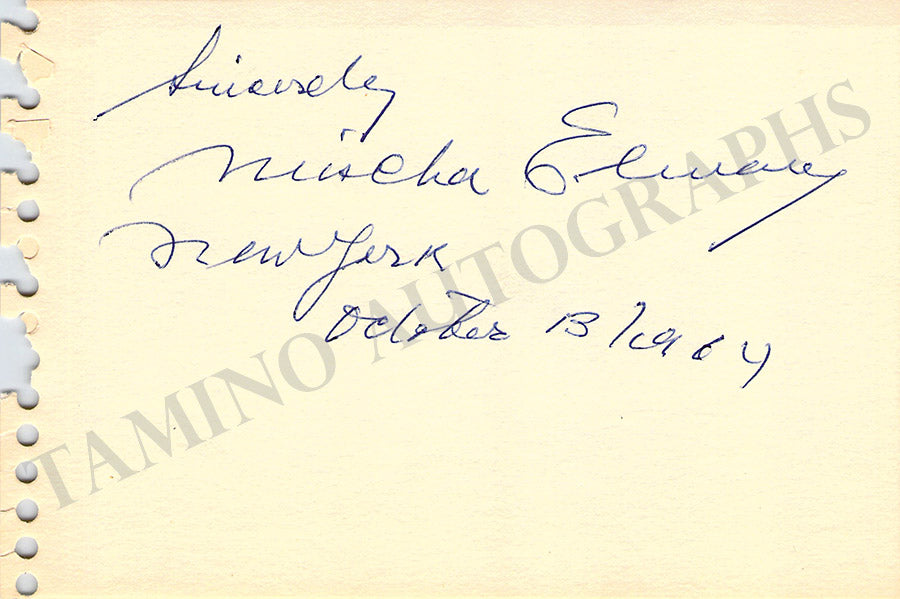 Sincerely
Mischa Elman
New York
October 13/1964
TAMINO AUTOGRAPHS